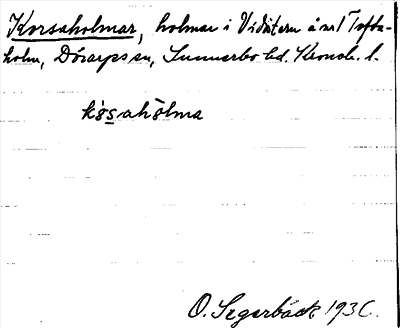 Korsaholmar, holmar i Vidöstern å nr 1 Tofta-
holm, Dörarps sn, Sunnerbo hd. Kronob. l.
kåsahòlma
O. Segerbäck 193